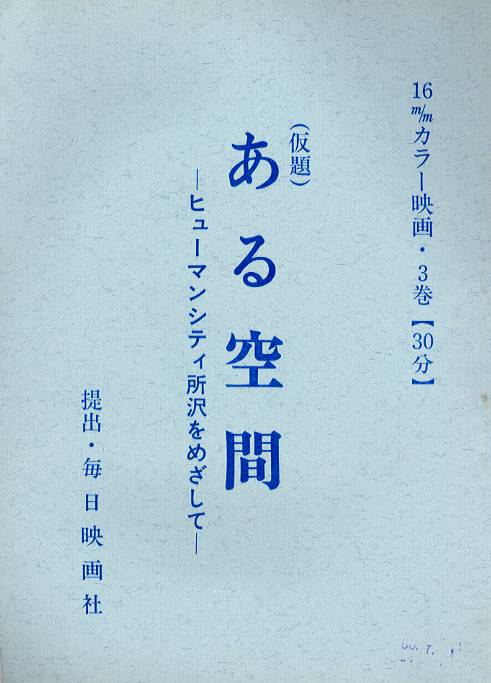 16m/mカラー映画・3巻【30分】
(仮題)
ある空間
―ヒューマンシティ所沢をめざして―
提出・毎日映画社